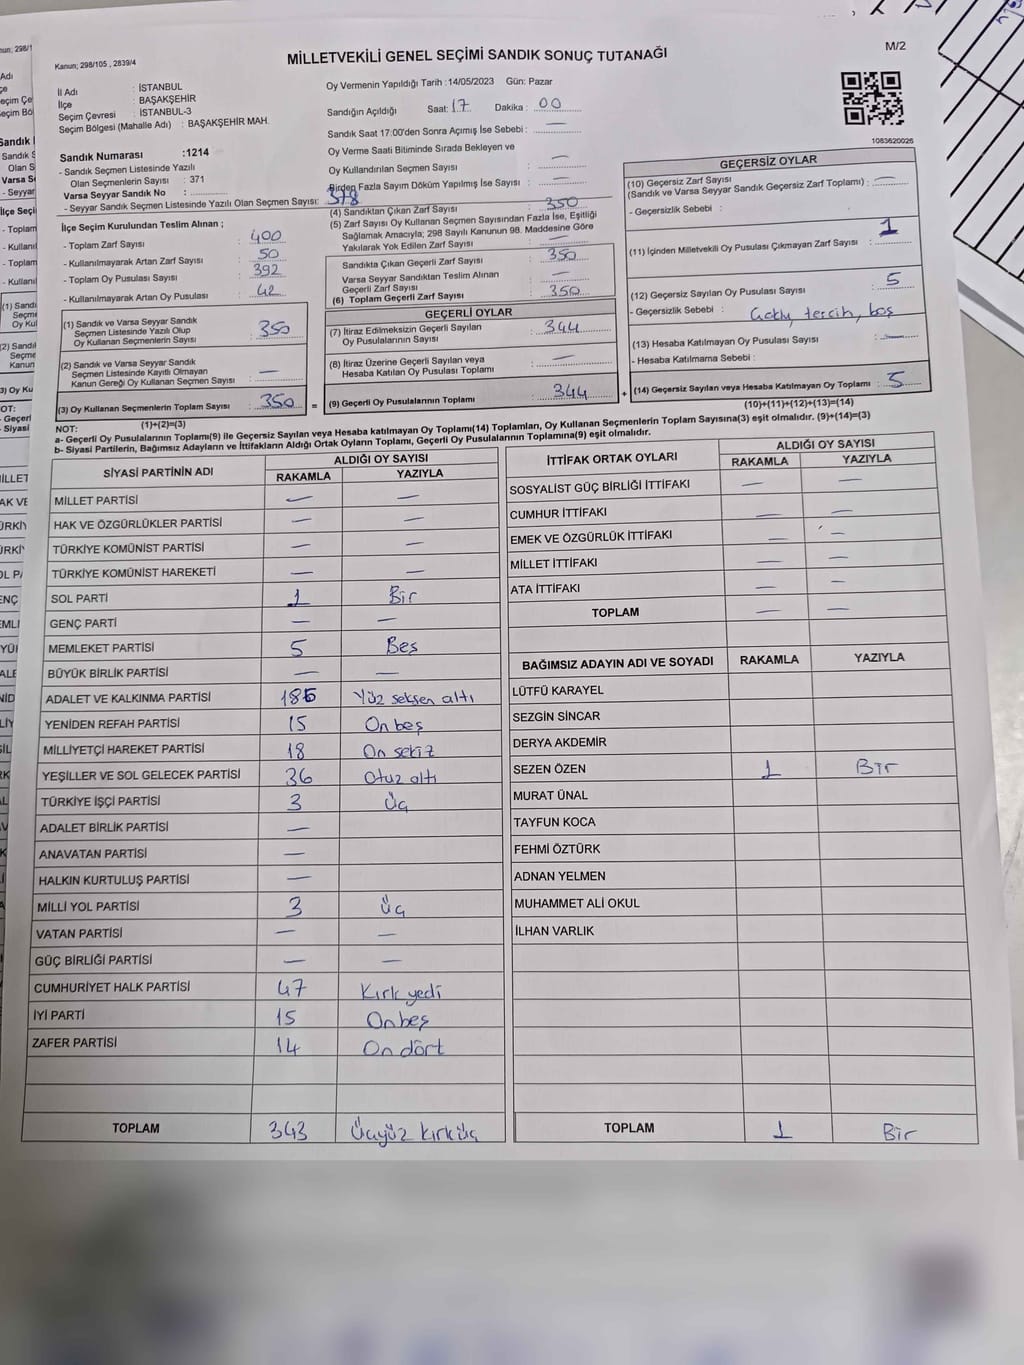 Kanun; 298/105 , 2839/4
MİLLETVEKİLİ GENEL SEÇİMİ SANDIK SONUÇ TUTANAĞI
M/2
İl Adı : İSTANBUL
İlçe : BAŞAKŞEHİR
Seçim Çevresi : İSTANBUL-3
Seçim Bölgesi (Mahalle Adı) : BAŞAKŞEHİR MAH.
Oy Vermenin Yapıldığı Tarih :14/05/2023 Gün: Pazar
Sandığın Açıldığı Saat: 17 Dakika : 00
Sandık Saat 17:00'den Sonra Açılmış İse Sebebi : —
Oy Verme Saati Bitiminde Sırada Bekleyen ve
Oy Kullandırılan Seçmen Sayısı : —
Birden Fazla Sayım Döküm Yapılmış İse Sayısı : —
1083620026
Sandık Numarası :1214
- Sandık Seçmen Listesinde Yazılı
Olan Seçmenlerin Sayısı : 371
Varsa Seyyar Sandık No :
- Seyyar Sandık Seçmen Listesinde Yazılı Olan Seçmen Sayısı: 378
İlçe Seçim Kurulundan Teslim Alınan ;
- Toplam Zarf Sayısı : 400
- Kullanılmayarak Artan Zarf Sayısı : 50
- Toplam Oy Pusulası Sayısı : 392
- Kullanılmayarak Artan Oy Pusulası : 42
(1) Sandık ve Varsa Seyyar Sandık
Seçmen Listesinde Yazılı Olup
Oy Kullanan Seçmenlerin Sayısı : 350
(2) Sandık ve Varsa Seyyar Sandık
Seçmen Listesinde Kayıtlı Olmayan
Kanun Gereği Oy Kullanan Seçmen Sayısı : —
(3) Oy Kullanan Seçmenlerin Toplam Sayısı : 350
(1)+(2)=(3)
(4) Sandıktan Çıkan Zarf Sayısı : 350
(5) Zarf Sayısı Oy Kullanan Seçmen Sayısından Fazla İse, Eşitliği
Sağlamak Amacıyla; 298 Sayılı Kanunun 98. Maddesine Göre
Yakılarak Yok Edilen Zarf Sayısı : —
Sandıkta Çıkan Geçerli Zarf Sayısı : 350
Varsa Seyyar Sandıktan Teslim Alınan
Geçerli Zarf Sayısı : —
(6) Toplam Geçerli Zarf Sayısı : 350
GEÇERLİ OYLAR
(7) İtiraz Edilmeksizin Geçerli Sayılan
Oy Pusulalarının Sayısı : 344
(8) İtiraz Üzerine Geçerli Sayılan veya
Hesaba Katılan Oy Pusulası Toplamı : —
= (9) Geçerli Oy Pusulalarının Toplamı : 344 +
GEÇERSİZ OYLAR
(10) Geçersiz Zarf Sayısı
(Sandık ve Varsa Seyyar Sandık Geçersiz Zarf Toplamı) : —
- Geçersizlik Sebebi :
(11) İçinden Milletvekili Oy Pusulası Çıkmayan Zarf Sayısı : 1
(12) Geçersiz Sayılan Oy Pusulası Sayısı : 5
- Geçersizlik Sebebi : tercih, boş
(13) Hesaba Katılmayan Oy Pusulası Sayısı : —
- Hesaba Katılmama Sebebi :
(14) Geçersiz Sayılan veya Hesaba Katılmayan Oy Toplamı : 5
(10)+(11)+(12)+(13)=(14)
NOT:
a- Geçerli Oy Pusulalarının Toplamı(9) ile Geçersiz Sayılan veya Hesaba katılmayan Oy Toplamı(14) Toplamları, Oy Kullanan Seçmenlerin Toplam Sayısına(3) eşit olmalıdır. (9)+(14)=(3)
b- Siyasi Partilerin, Bağımsız Adayların ve İttifakların Aldığı Ortak Oyların Toplamı, Geçerli Oy Pusulalarının Toplamına(9) eşit olmalıdır.
SİYASİ PARTİNİN ADI ALDIĞI OY SAYISI
RAKAMLA YAZIYLA
MİLLET PARTİSİ — —
HAK VE ÖZGÜRLÜKLER PARTİSİ — —
TÜRKİYE KOMÜNİST PARTİSİ — —
TÜRKİYE KOMÜNİST HAREKETİ — —
SOL PARTİ 1 Bir
GENÇ PARTİ — —
MEMLEKET PARTİSİ 5 Beş
BÜYÜK BİRLİK PARTİSİ — —
ADALET VE KALKINMA PARTİSİ 186 Yüz seksen altı
YENİDEN REFAH PARTİSİ 15 On beş
MİLLİYETÇİ HAREKET PARTİSİ 18 On sekiz
YEŞİLLER VE SOL GELECEK PARTİSİ 36 Otuz altı
TÜRKİYE İŞÇİ PARTİSİ 3 Üç
ADALET BİRLİK PARTİSİ —
ANAVATAN PARTİSİ —
HALKIN KURTULUŞ PARTİSİ —
MİLLİ YOL PARTİSİ 3 Üç
VATAN PARTİSİ — —
GÜÇ BİRLİĞİ PARTİSİ — —
CUMHURİYET HALK PARTİSİ 47 Kırk yedi
İYİ PARTİ 15 Onbeş
ZAFER PARTİSİ 14 On dört
TOPLAM 343 Üçyüz kırküç
İTTİFAK ORTAK OYLARI ALDIĞI OY SAYISI
RAKAMLA YAZIYLA
SOSYALİST GÜÇ BİRLİĞİ İTTİFAKI — —
CUMHUR İTTİFAKI — —
EMEK VE ÖZGÜRLÜK İTTİFAKI — —
MİLLET İTTİFAKI — —
ATA İTTİFAKI — —
TOPLAM — —
BAĞIMSIZ ADAYIN ADI VE SOYADI RAKAMLA YAZIYLA
LÜTFÜ KARAYEL
SEZGİN SİNCAR
DERYA AKDEMİR
SEZEN ÖZEN 1 Bir
MURAT ÜNAL
TAYFUN KOCA
FEHMİ ÖZTÜRK
ADNAN YELMEN
MUHAMMET ALİ OKUL
İLHAN VARLIK
TOPLAM 1 Bir